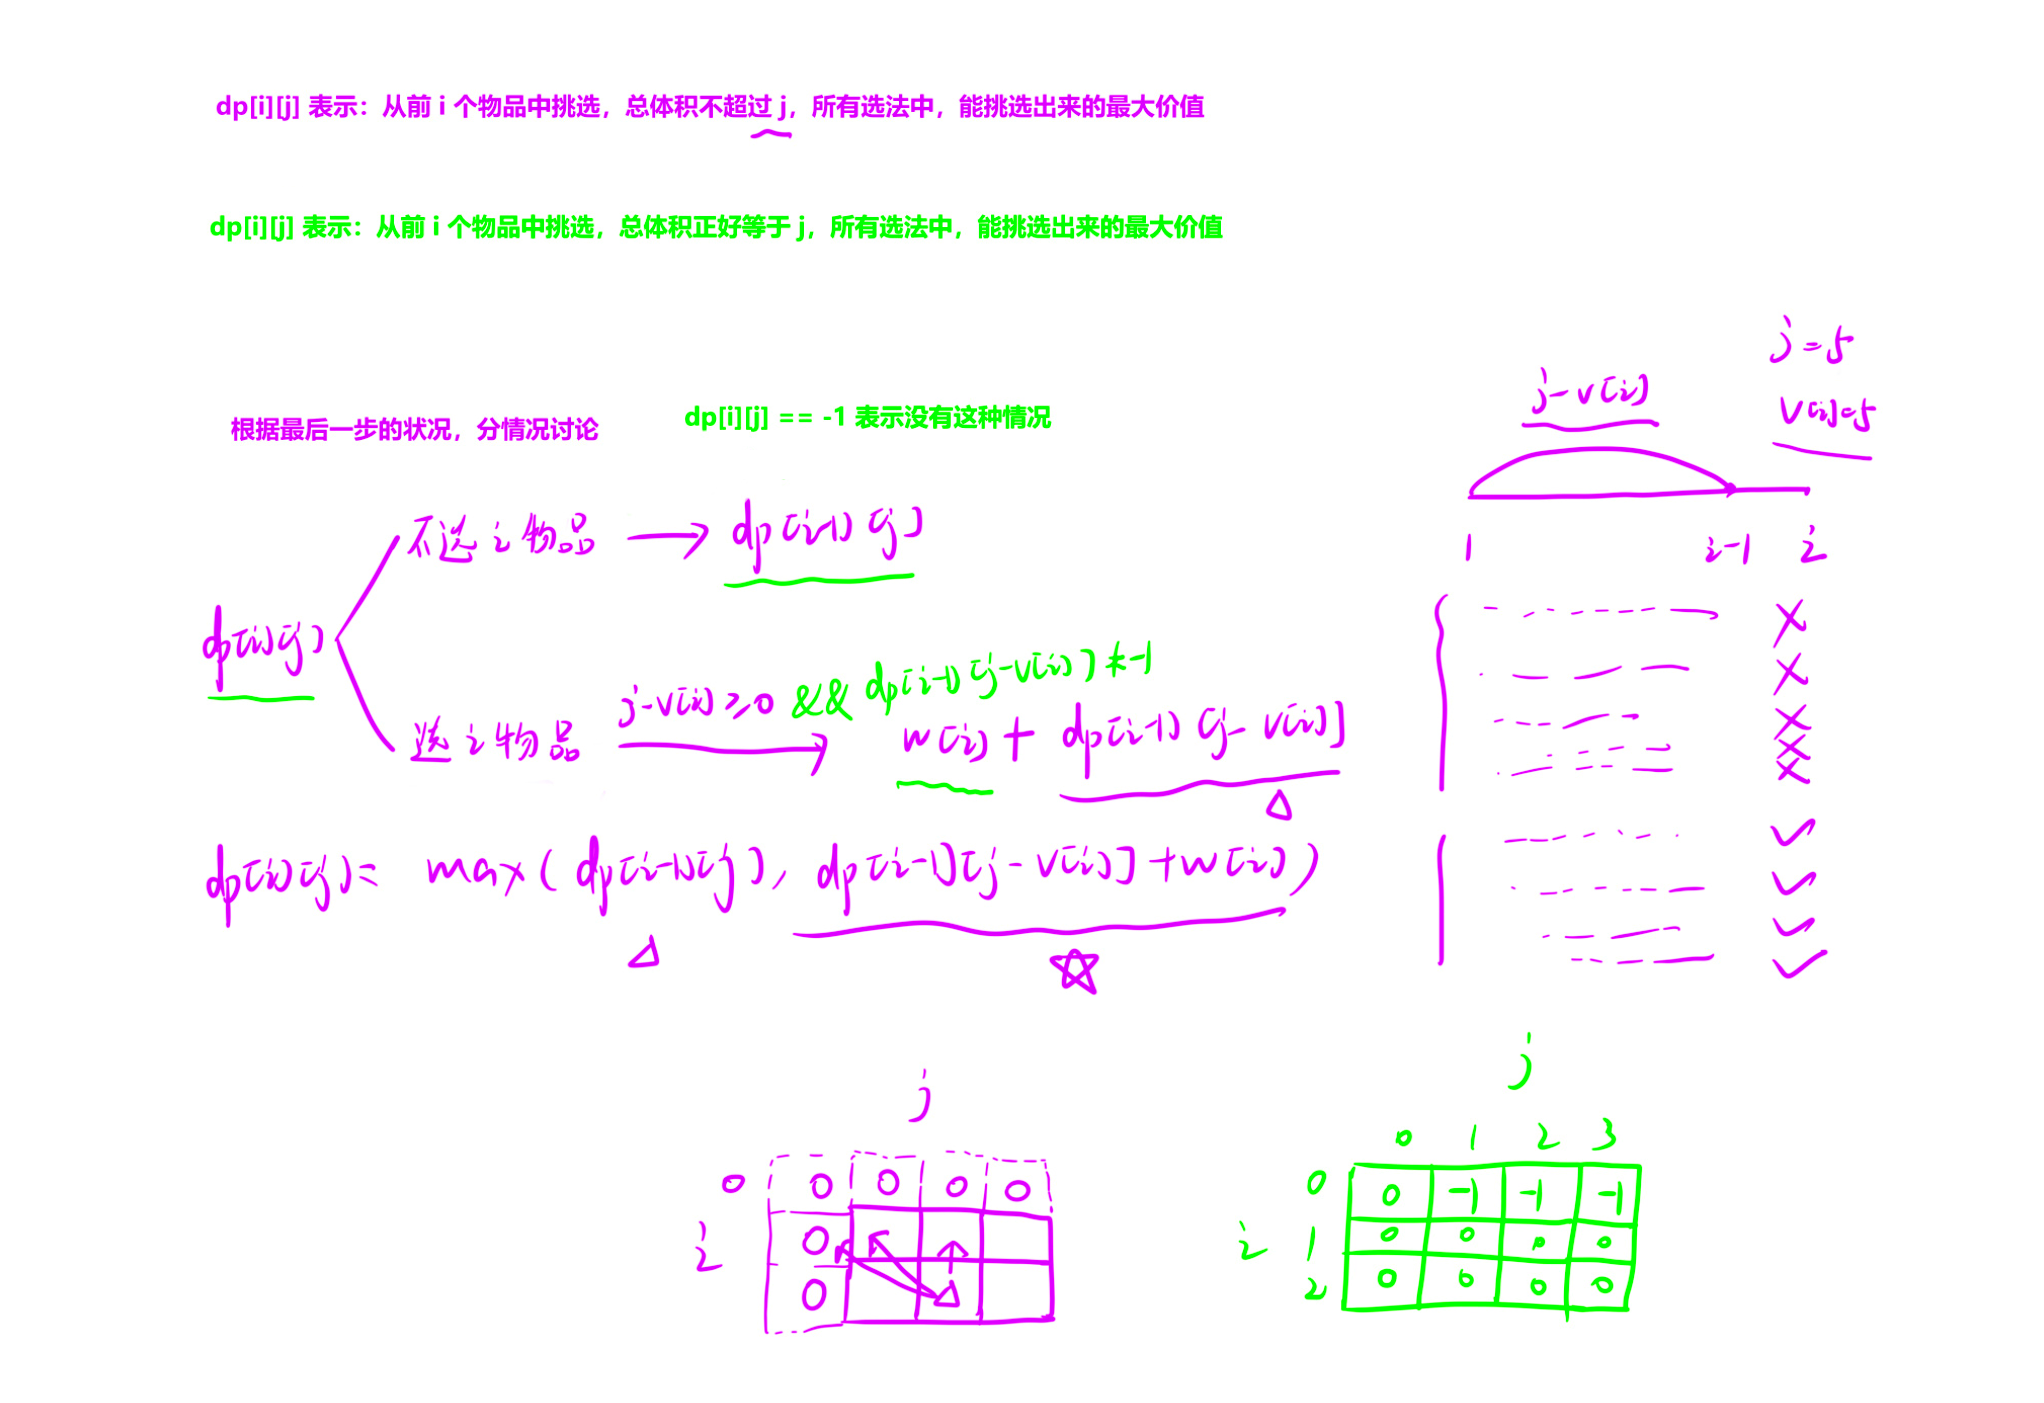 dp[i][j] 表示：从前 i 个物品中挑选，总体积不超过 j，所有选法中，能挑选出来的最大价值
dp[i][j] 表示：从前 i 个物品中挑选，总体积正好等于 j，所有选法中，能挑选出来的最大价值
j=5
j-v[i]
v[i]=5
根据最后一步的状况，分情况讨论
dp[i][j] == -1 表示没有这种情况
1 i-1 i
不选i物品 → dp[i-1][j]
dp[i][j]
j-v[i]≥0 && dp[i-1][j-v[i]]≠-1
选i物品 → w[i] + dp[i-1][j-v[i]]
dp[i][j]= max(dp[i-1][j], dp[i-1][j-v[i]]+w[i])
j
0 0 0 0 0
i 0
0
j
0 1 2 3
0 0 -1 -1 -1
i 1 0 0 0 0
2 0 0 0 0